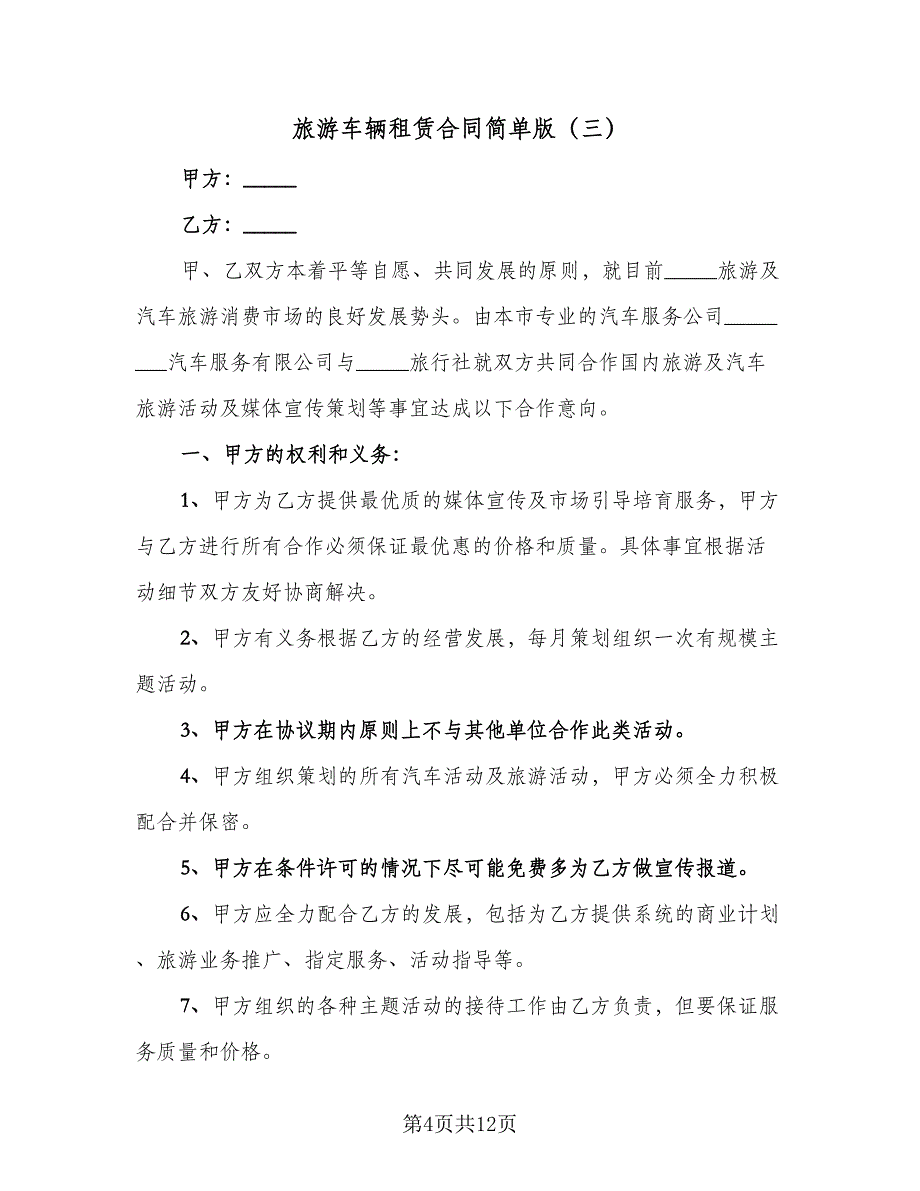 旅游车辆租赁合同简单版（三）
甲方：_____
乙方：_____
甲、乙双方本着平等自愿、共同发展的原则，就目前_____旅游及
汽车旅游消费市场的良好发展势头。由本市专业的汽车服务公司_____
___汽车服务有限公司与_____旅行社就双方共同合作国内旅游及汽车
旅游活动及媒体宣传策划等事宜达成以下合作意向。
一、甲方的权利和义务：
1、甲方为乙方提供最优质的媒体宣传及市场引导培育服务，甲方
与乙方进行所有合作必须保证最优惠的价格和质量。具体事宜根据活
动细节双方友好协商解决。
2、甲方有义务根据乙方的经营发展，每月策划组织一次有规模主
题活动。
3、甲方在协议期内原则上不与其他单位合作此类活动。
4、甲方组织策划的所有汽车活动及旅游活动，甲方必须全力积极
配合并保密。
5、甲方在条件许可的情况下尽可能免费多为乙方做宣传报道。
6、甲方应全力配合乙方的发展，包括为乙方提供系统的商业计划
、旅游业务推广、指定服务、活动指导等。
7、甲方组织的各种主题活动的接待工作由乙方负责，但要保证服
务质量和价格。
第4页共12页